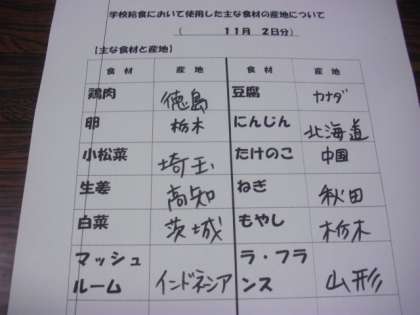 学校給食において使用した主な食材の産地について
( 11月 2日分)
【主な食材と産地】
食 材 産 地 食 材 産 地
鶏肉 徳島 豆腐 カナダ
卵 栃木 にんじん 北海道
小松菜 埼玉 たけのこ 中国
生姜 高知 ねぎ 秋田
白菜 茨城 もやし 栃木
マッシュ ラ・フラ
ルーム インドネシア ンス 山形